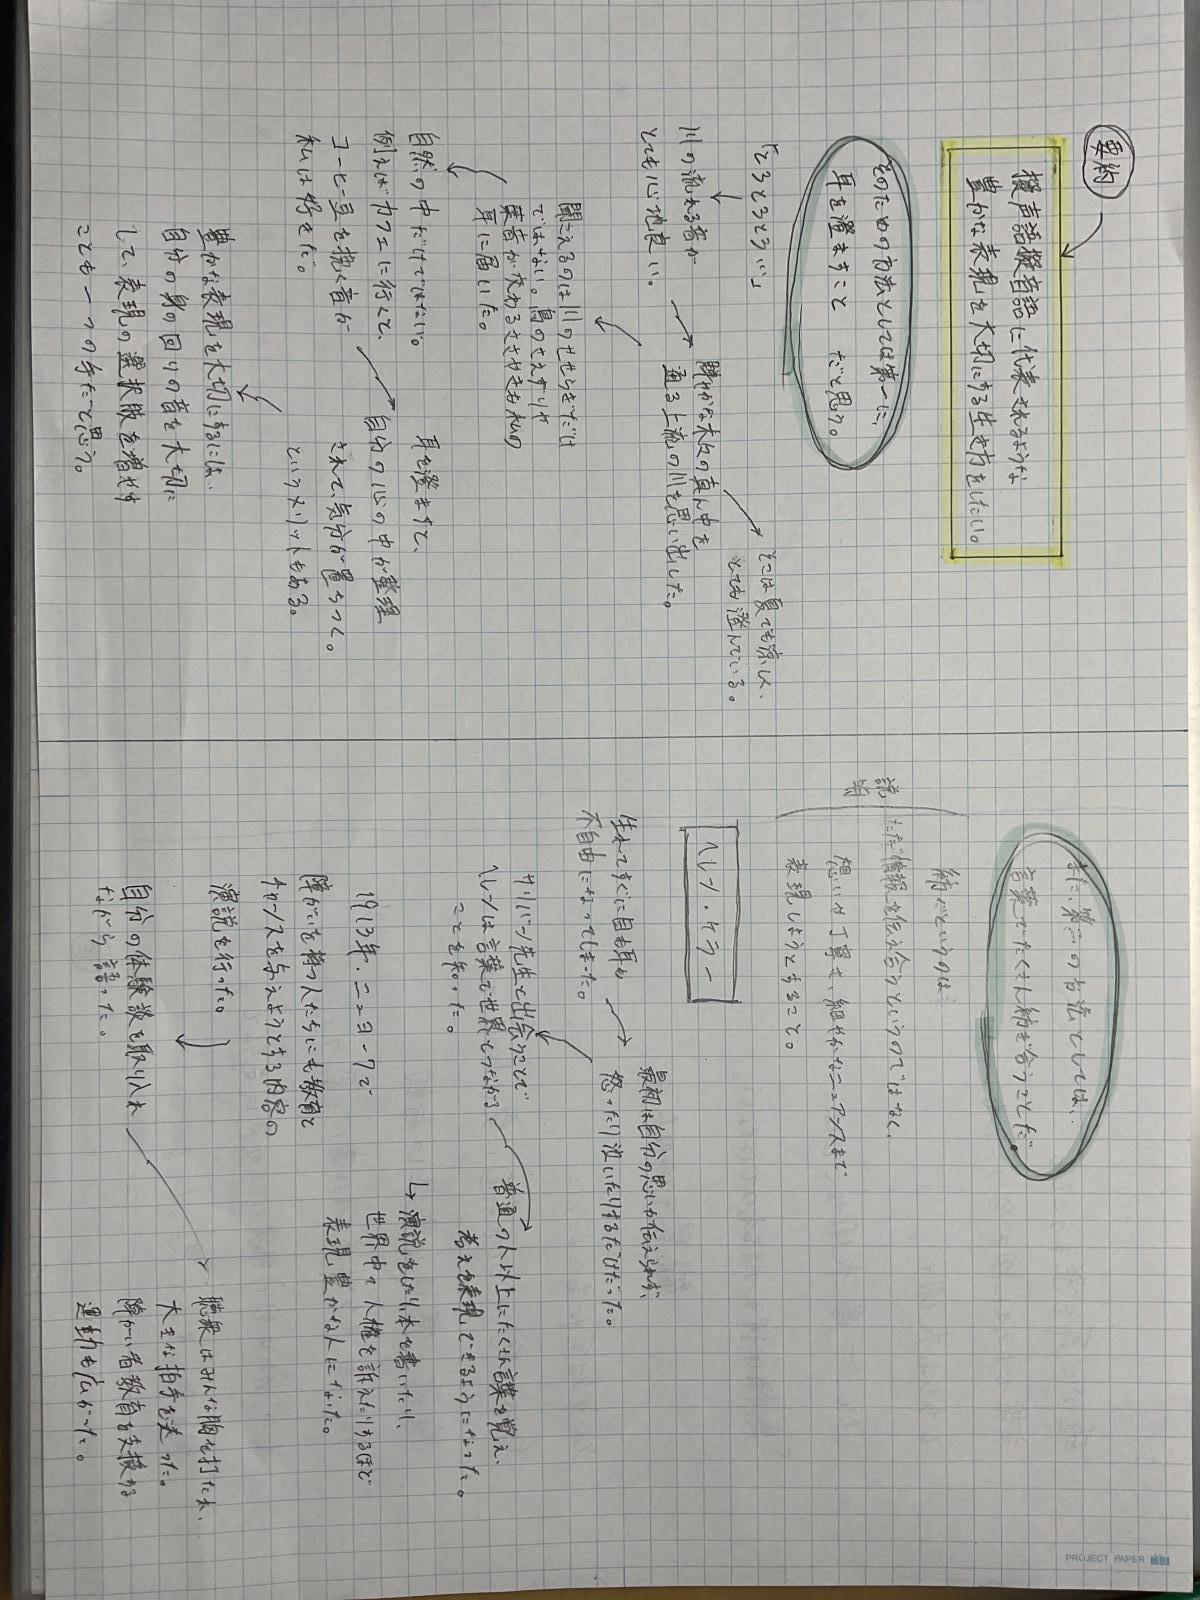 要約
擬声語擬音語に代表されるような
豊かな表現を大切にする生き方をしたい。
そのための方法としては第一に、
耳を澄ますこと だと思う。
「とうとうとう…」
川の流れる音が
とても心地良い。
静かな木々の真ん中を
通る上流の川を思い出した。
そこは夏でも涼しく、
とても澄んでいる。
聞こえるのは川のせせらぎだけ
ではない。鳥のさえずりや
葉音が交わるささやきも私の
耳に届いた。
自然の中だけではない。
例えばカフェに行くと、
コーヒー豆を挽く音が
私は好きだ。
耳を澄ますと、
自分の心の中が整理
されて、気分が置ちつく。
というメリットもある。
豊かな表現を大切にするには…
自分の身の回りの音を大切に
して、表現の選択肢を増やす
ことも一つの手だと思う。
また、第二の方法としては、
言葉でたくさん紡ぎ合うことだ。
説明
紡ぐというのは…
ただ情報を伝え合うというのではなく、
想いを丁寧に、細やかなニュアンスまで
表現しようとすること。
ヘレン・ケラー
生れてすぐに目も耳も
不自由になってしまった。
最初は自分の思いが伝えられず、
怒ったり泣いたりするだけだった。
サリバン先生と出会うことで
ヘレンは言葉で世界とつながる
ことを知った。
普通の人以上にたくさん言葉を覚え、
考えを表現できるようになった。
↳演説をしたり本を書いたり、
世界中で人権を訴えたりするほど
表現豊かな人になった。
1913年、ニューヨークで
障がいを持つ人たちにも教育と
チャンスを与えようとする内容の
演説を行った。
自分の体験談を取り入れ
ながら語った。
聴衆はみんな胸を打たれ、
大きな拍手を送った。
障がい者教育を支援する
運動も広がった。
PROJECT PAPER okina